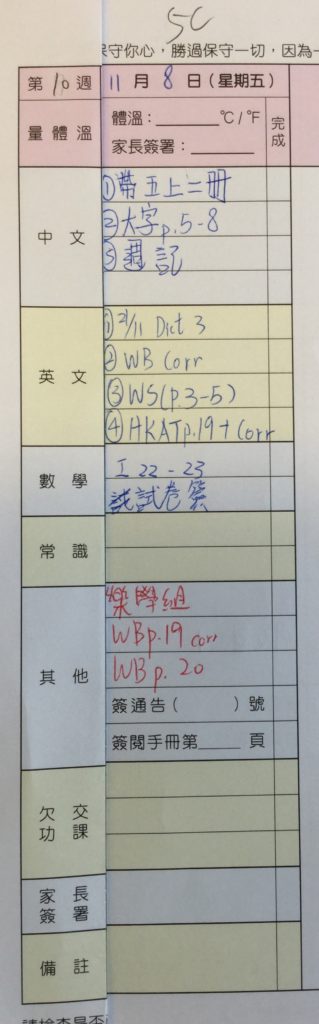 5C
保守你心，勝過保守一切，因為一
第10週 11月8日(星期五)
量體溫 體溫：______°C/°F 完成
家長簽署：______
中文 ①帶五上二冊
②大字p.5-8
③週記
英文 ① 21/11 Dict 3
② WB Corr
③ WS(p.3-5)
④ HKAT p.19 + Corr
數學 I 22-23
試卷簽
常識
其他 樂學組
WB p.19 corr
WB p.20
簽通告( )號
簽閱手冊第____頁
欠交功課
家長簽署
備註